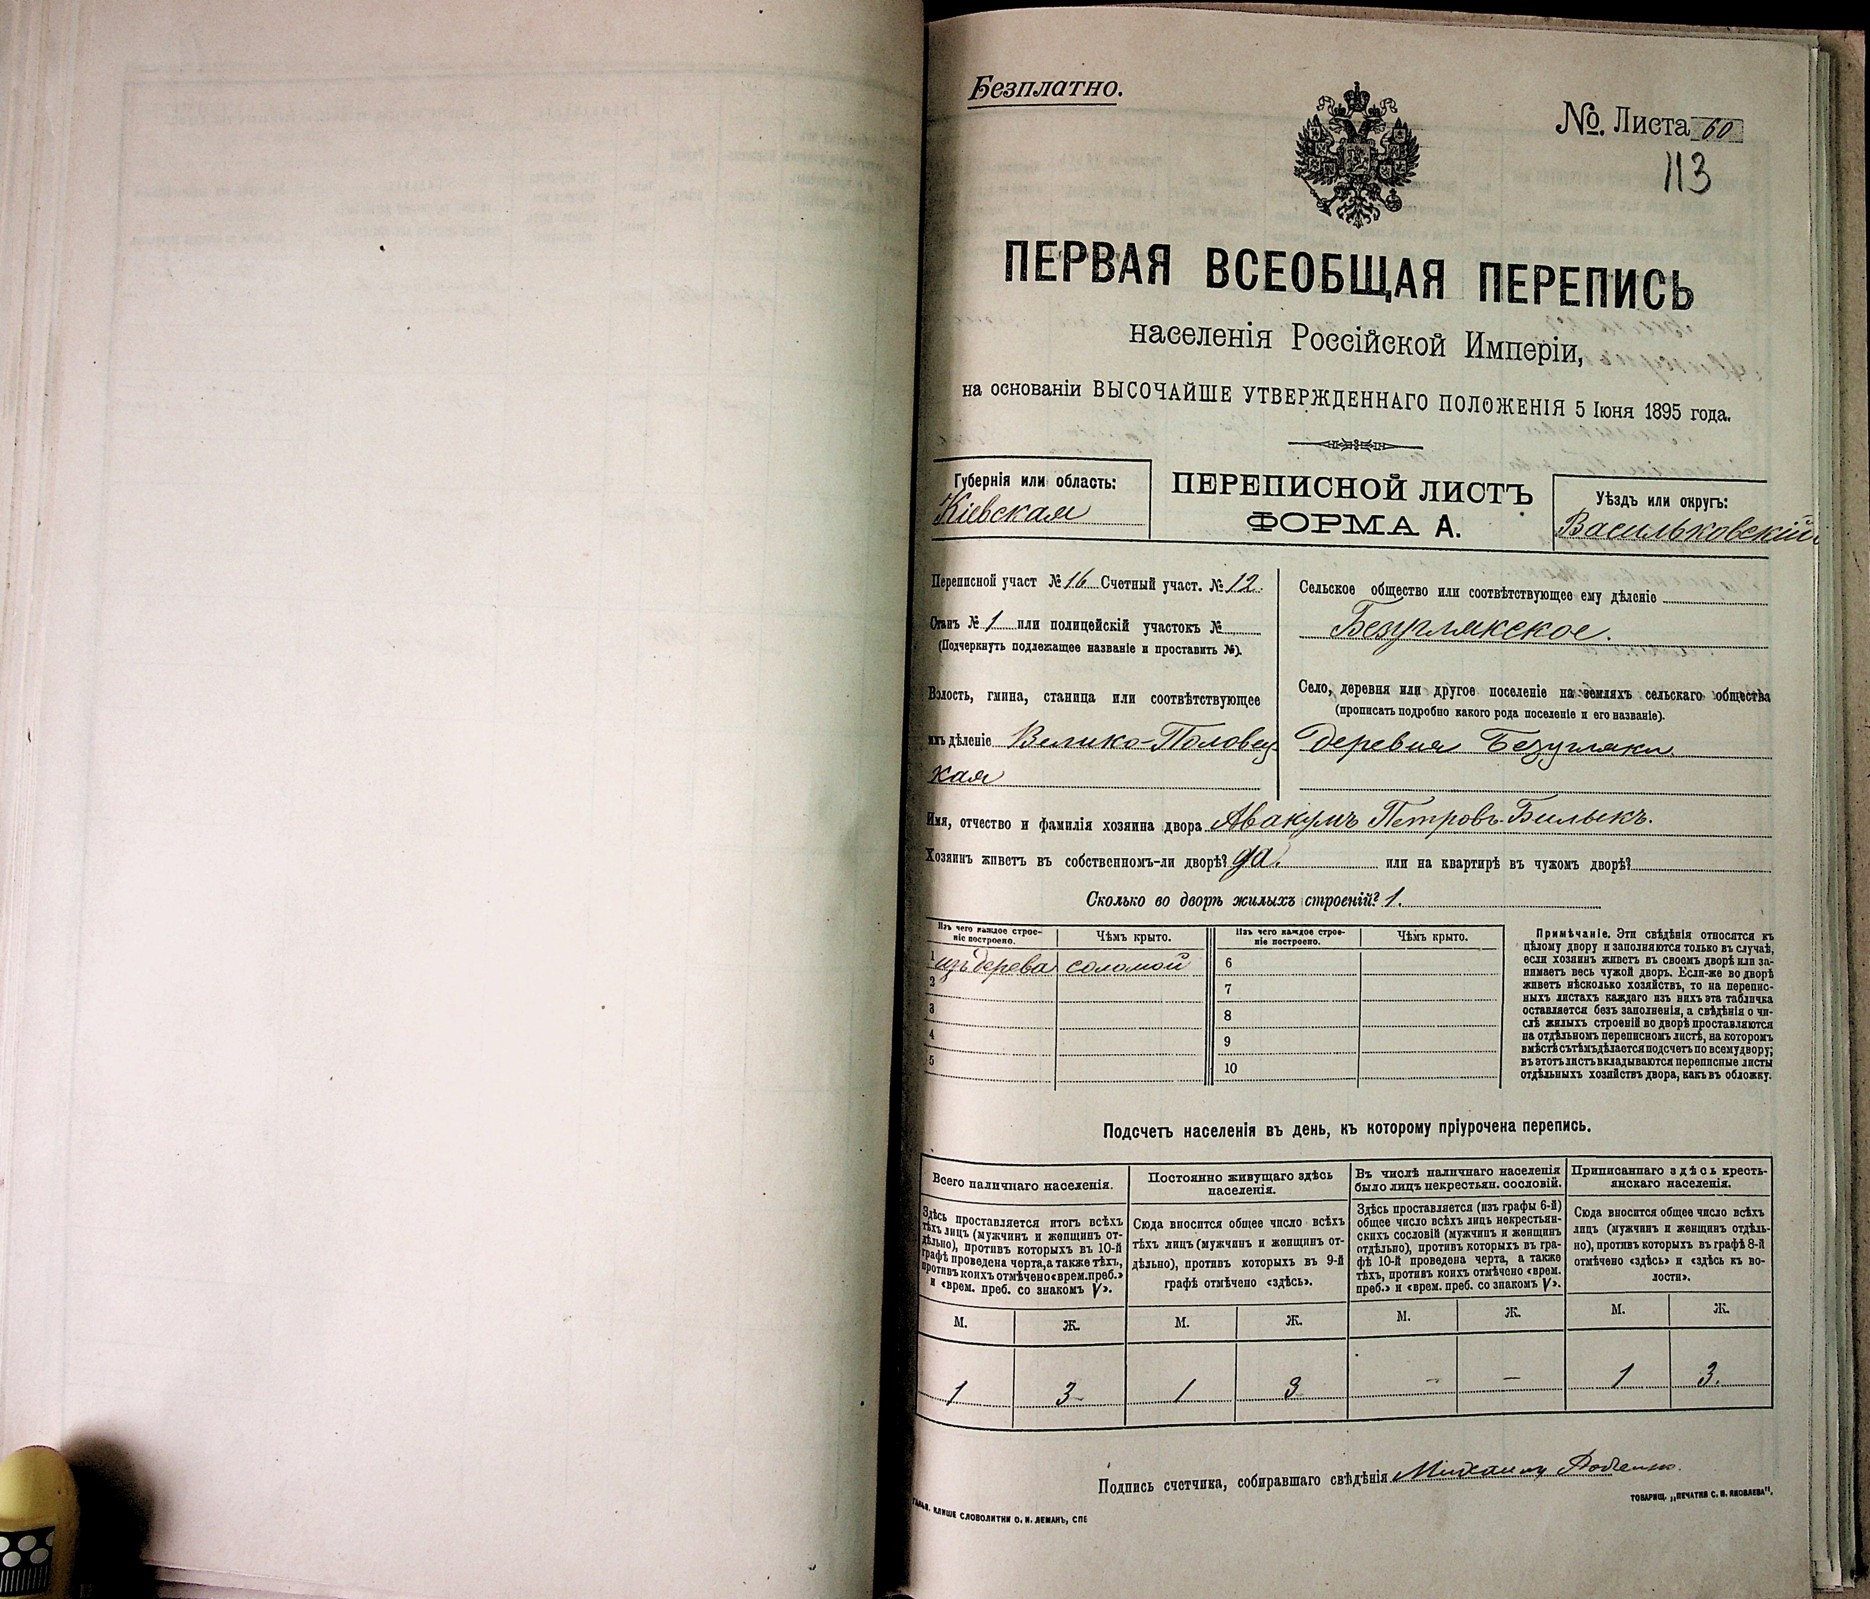 Безплатно.
№. Листа 60
113
ПЕРВАЯ ВСЕОБЩАЯ ПЕРЕПИСЬ
населенія Россійской Имперіи,
на основаніи ВЫСОЧАЙШЕ УТВЕРЖДЕННАГО ПОЛОЖЕНІЯ 5 Іюня 1895 года.
Губернія или область:
Кіевская
ПЕРЕПИСНОЙ ЛИСТЪ
ФОРМА А.
Уѣздъ или округъ:
Васильковскій
Переписной участ № 16 Счетный участ. № 12.
Станъ № 1 или полицейскій участокъ №
(Подчеркнуть подлежащее названіе и проставить №).
Волость, гмина, станица или соотвѣтствующее
имъ дѣленіе Велико-Половец
кая
Сельское общество или соотвѣтствующее ему дѣленіе
Безуглякское.
Село, деревня или другое поселеніе на земляхъ сельскаго общества
(прописать подробно какого рода поселеніе и его названіе).
деревня Безугляки
Имя, отчество и фамилія хозяина двора Авакумъ Петровъ Билыкъ.
Хозяинъ живетъ въ собственномъ-ли дворѣ? да. или на квартирѣ въ чужомъ дворѣ?
Сколько во дворѣ жилыхъ строеній? 1.
Изъ чего каждое строеніе построено.
Чѣмъ крыто.
Изъ чего каждое строеніе построено.
Чѣмъ крыто.
1 изъ дерева соломой
2
3
4
5
6
7
8
9
10
Примѣчаніе. Эти свѣдѣнія относятся къ
цѣлому двору и заполняются только въ случаѣ,
если хозяинъ живетъ въ своемъ дворѣ или за-
нимаетъ весь чужой дворъ. Если-же во дворѣ
живетъ нѣсколько хозяйствъ, то на перепис-
ныхъ листахъ каждаго изъ нихъ эта табличка
оставляется безъ заполненія, а свѣдѣнія о чи-
слѣ жилыхъ строеній во дворѣ проставляются
на отдѣльномъ переписномъ листѣ, на которомъ
вмѣстѣ съ тѣмъ дѣлается подсчетъ по всему двору;
въ этотъ листъ вкладываются переписные листы
отдѣльныхъ хозяйствъ двора, какъ въ обложку.
Подсчетъ населенія въ день, къ которому пріурочена перепись.
Всего наличнаго населенія.
Здѣсь проставляется итогъ всѣхъ
тѣхъ лицъ (мужчинъ и женщинъ от-
дѣльно), противъ которыхъ въ 10-й
графѣ проведена черта, а также тѣхъ,
противъ коихъ отмѣчено «врем. преб.»
и «врем. преб. со знакомъ V».
Постоянно живущаго здѣсь
населенія.
Сюда вносится общее число всѣхъ
тѣхъ лицъ (мужчинъ и женщинъ от-
дѣльно), противъ которыхъ въ 9-й
графѣ отмѣчено «здѣсь».
Въ числѣ наличнаго населенія
было лицъ некрестьян. сословій.
Здѣсь проставляется (изъ графы 6-й)
общее число всѣхъ лицъ некрестьян-
скихъ сословій (мужчинъ и женщинъ
отдѣльно), противъ которыхъ въ гра-
фѣ 10-й проведена черта, а также
тѣхъ, противъ коихъ отмѣчено «врем.
преб.» и «врем. преб. со знакомъ V».
Приписаннаго здѣсь кресть-
янскаго населенія.
Сюда вносится общее число всѣхъ
лицъ (мужчинъ и женщинъ отдѣль-
но), противъ которыхъ въ графѣ 8-й
отмѣчено «здѣсь» и «здѣсь къ во-
лости».
М. Ж. М. Ж. М. Ж. М. Ж.
1 3 1 3 - - 1 3.
Подпись счетчика, собиравшаго свѣдѣнія Михаилъ
КЛИШЕ СЛОВОЛИТНИ О. И. ЛЕМАНЪ, СПБ
ТОВАРИЩ. „ПЕЧАТНЯ С. П. ЯКОВЛЕВА".